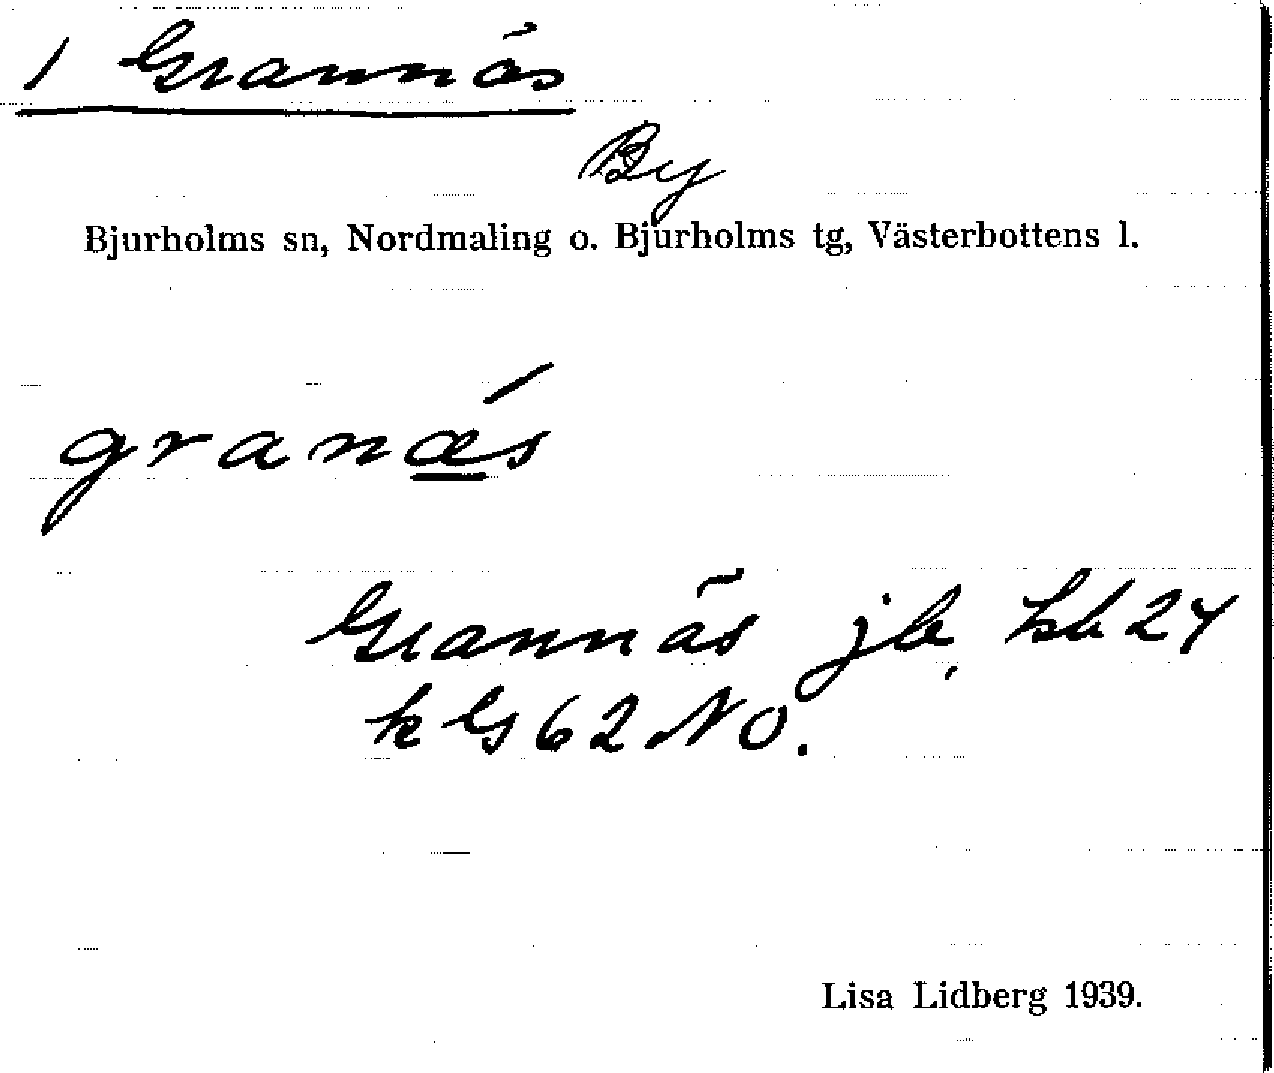 1 Grannäs
By
Bjurholms sn, Nordmaling o. Bjurholms tg, Västerbottens l.
granǽs
Grannäs jb, hsb 24
k G 62 NO.
Lisa Lidberg 1939.